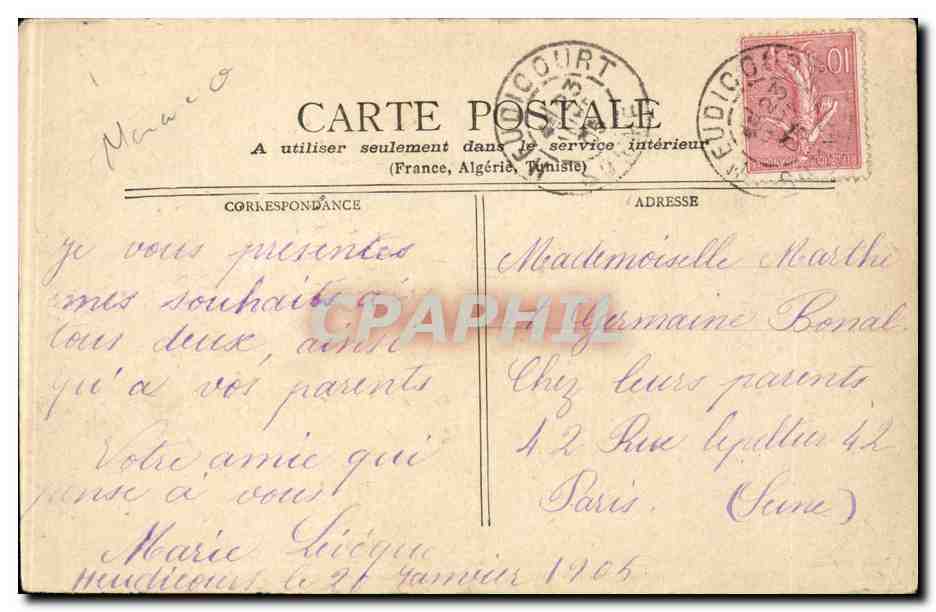 HEUDICOURT
HEUDICOURT
10
CARTE POSTALE
A utiliser seulement dans le service intérieur
(France, Algérie, Tunisie)
CORRESPONDANCE
ADRESSE
Je vous presentes
mes souhaits à
tous deux, ainsi
qu'a vos parents
Votre amie qui
pense à vous
Marie Lévêque
Heudicourt le 21 Janvier 1905
Mademoiselle Marthe
Germaine Bonal
Chez leurs parents
42 Rue lepeltier 42
Paris. (Seine)
CPAPHIL